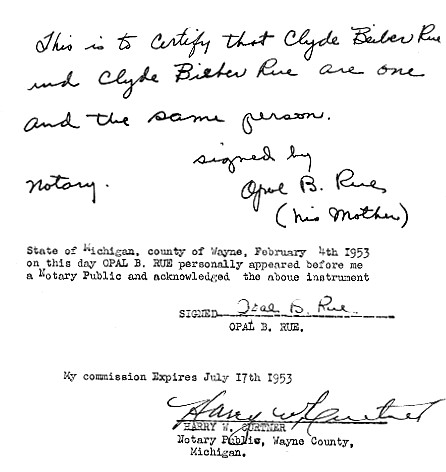 This is to Certify that Clyde Beiber Rue
and Clyde Bieber Rue are one
and the same person.
signed by
Notary. Opal B. Rue
(his Mother)
State of Michigan, county of Wayne, February 4th 1953
on this day OPAL B. RUE personally appeared before me
a Notary Public and acknowledged the aboue instrument
SIGNED Opal B. Rue.
OPAL B. RUE.
My commission Expires July 17th 1953
Harry W. Gurtner
HARRY W. GURTNER
Notary Public, Wayne County,
Michigan.